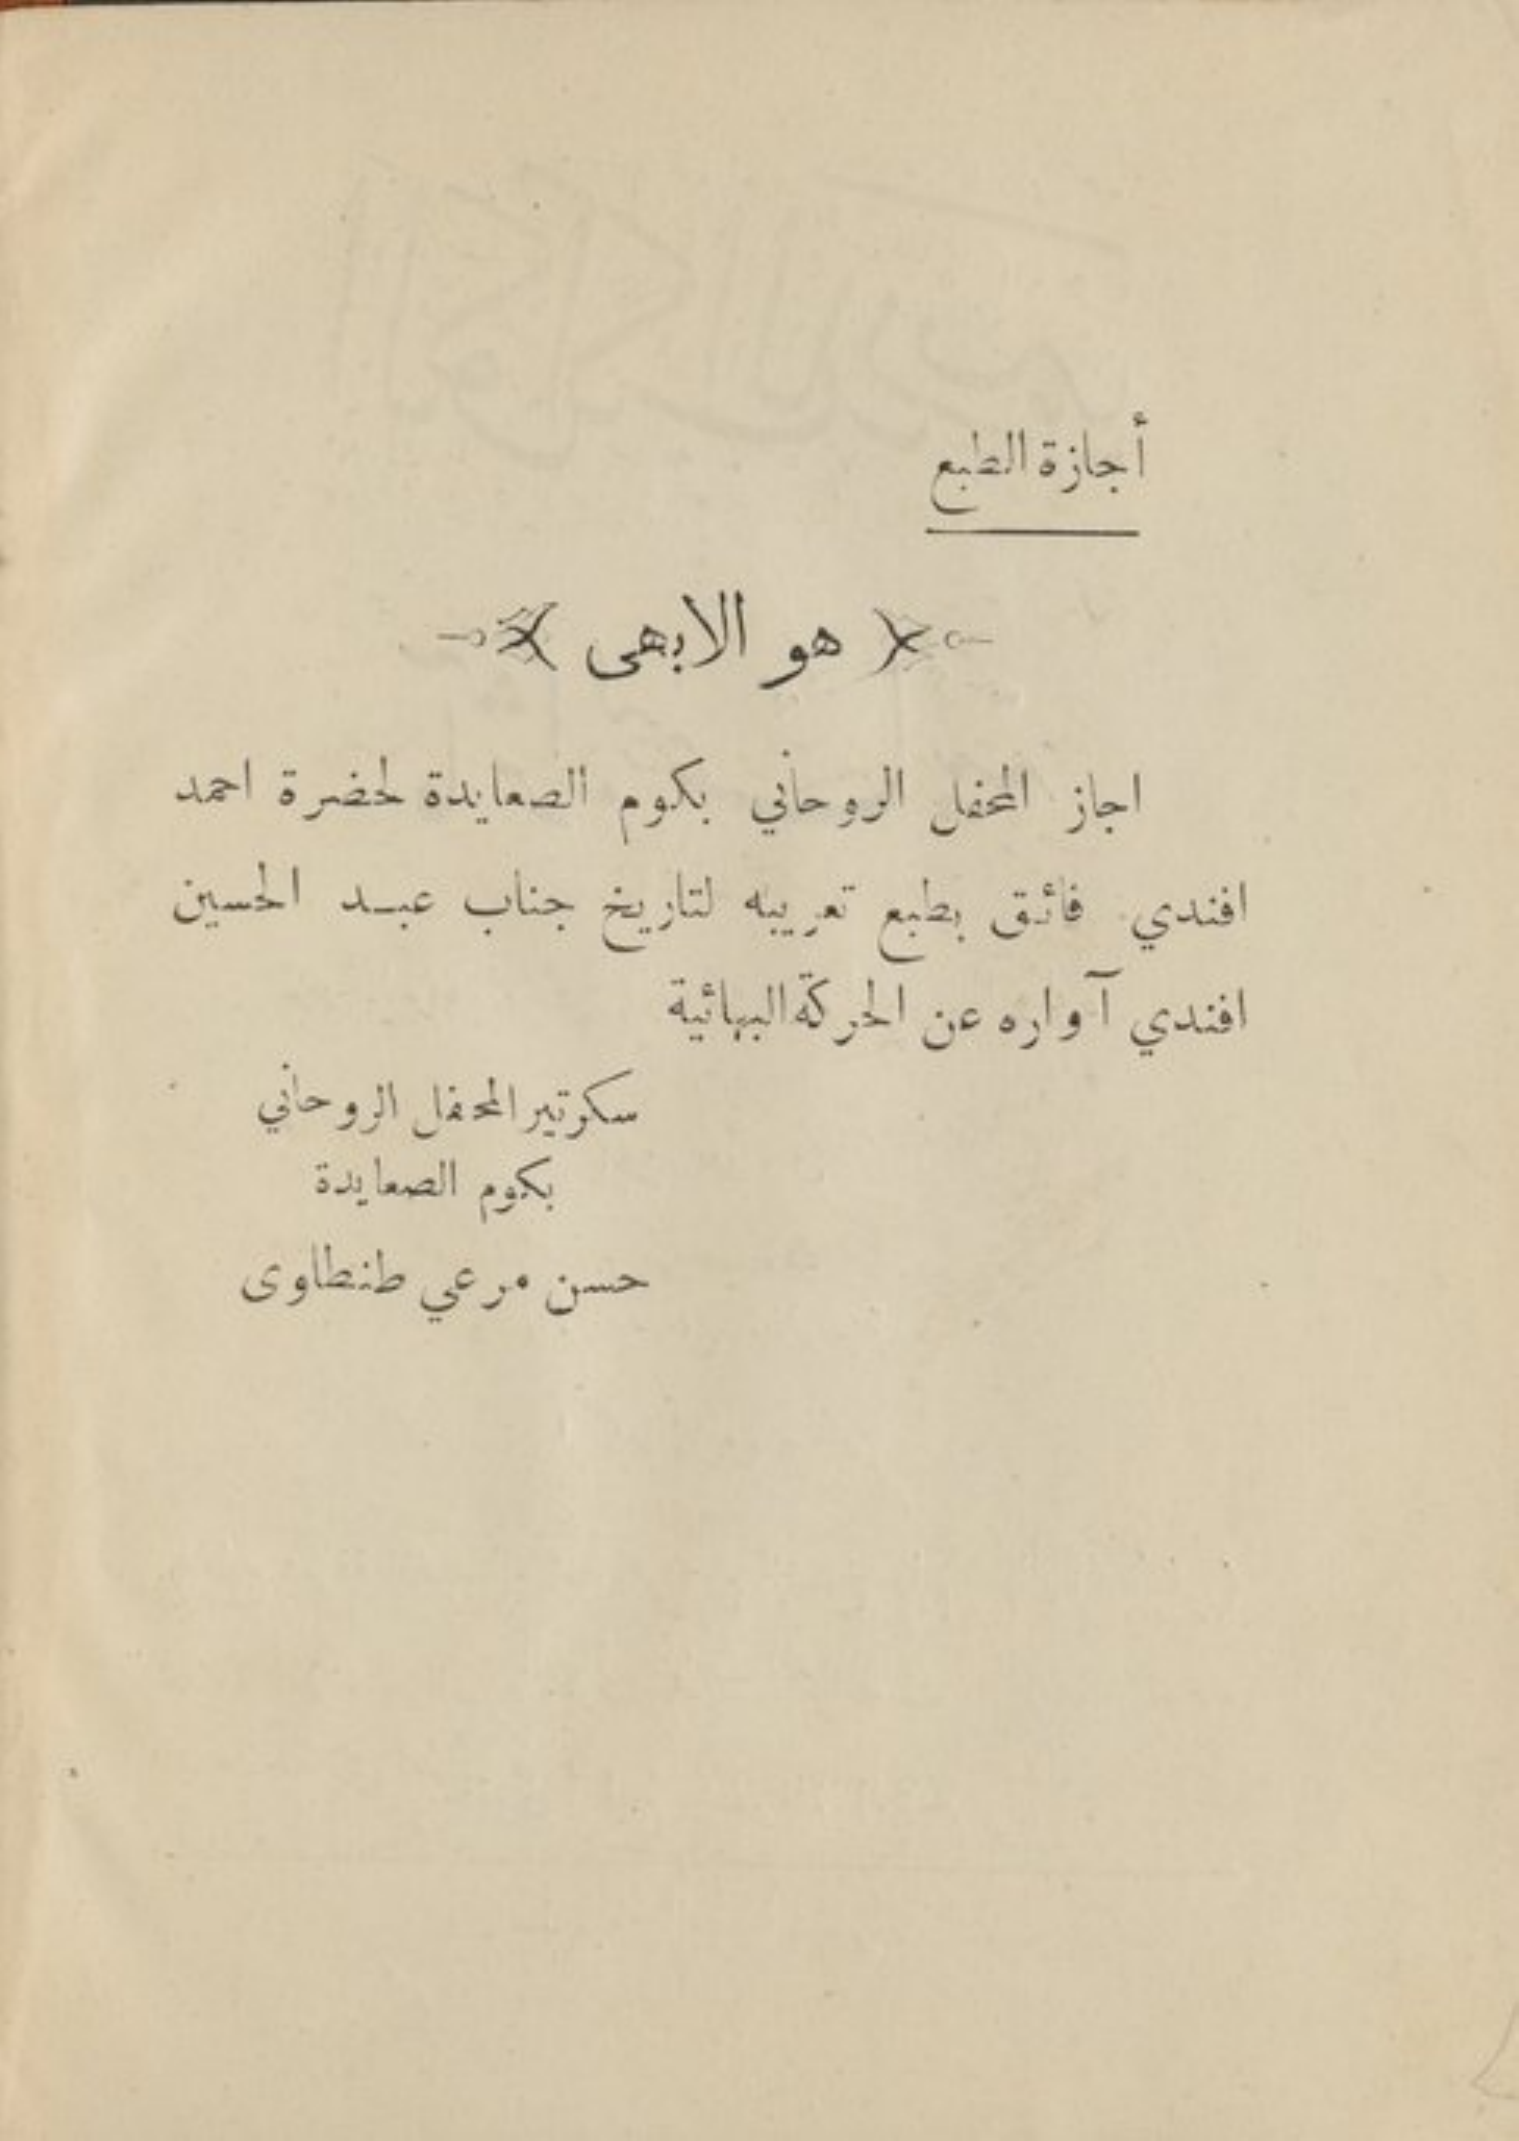 أجازة الطبع
هو الابهى
اجاز المحفل الروحاني بكوم الصعايدة لحضرة احمد
افندي فائق بطبع تعريبه لتاريخ جناب عبد الحسين
افندي آواره عن الحركة البهائية
سكرتير المحفل الروحاني
بكوم الصعايدة
حسن مرعي طنطاوى